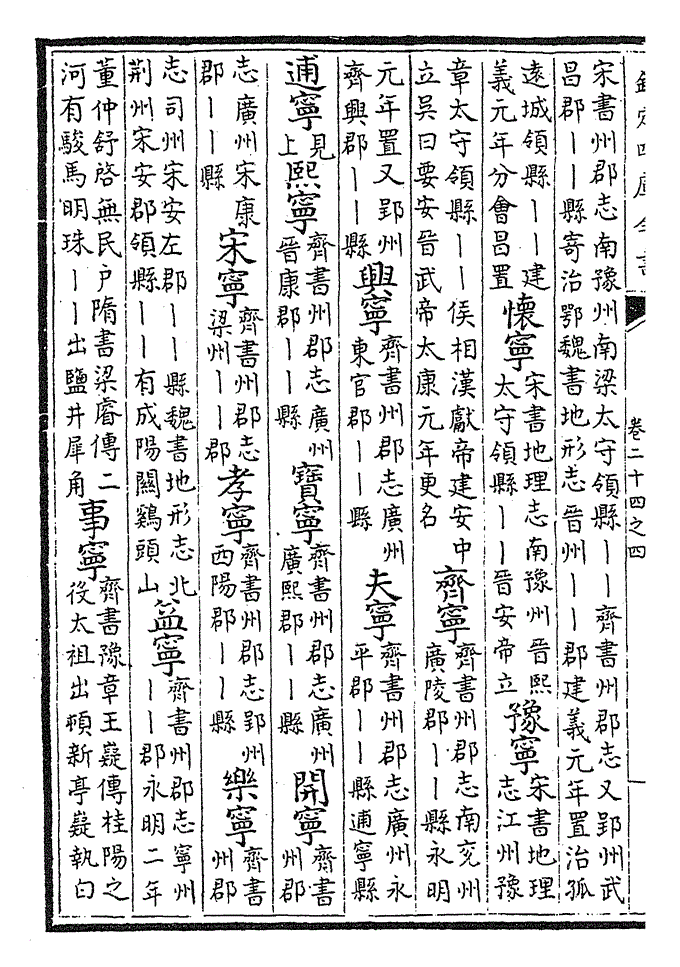 欽定四庫全書
卷二十四之四
宋書州郡志南豫州南梁太守領縣丨丨齊書州郡志又郢州武
昌郡丨丨縣寄治鄂魏書地形志晉州丨丨郡建義元年置治孤
遠城領縣丨丨建義元年分會昌置懷寧宋書地理志南豫州晉熙太守領縣丨丨晉安帝立豫寧宋書地理志江州豫
章太守領縣丨丨侯相漢獻帝建安中立吳曰要安晉武帝太康元年更名齊寧齊書州郡志南兗州廣陵郡丨丨縣永明
元年置又郢州齊興郡丨丨縣興寧齊書州郡志廣州東官郡丨丨縣夫寧齊書州郡志廣州永平郡丨丨縣逋寧縣
逋寧見上熙寧齊書州郡志廣州晉康郡丨丨縣寶寧齊書州郡志廣州廣熙郡丨丨縣開寧齊書州郡
志廣州宋康郡丨丨縣宋寧齊書州郡志梁州丨丨郡孝寧齊書州郡志郢州西陽郡丨丨縣樂寧齊書州郡
志司州宋安左郡丨丨縣魏書地形志北荆州宋安郡領縣丨丨有成陽關鷄頭山益寧齊書州郡志寧州丨丨郡永明二年
董仲舒啓無民户隋書梁睿傳二河有駿馬明珠丨丨出鹽井犀角事寧齊書豫章王嶷傳桂陽之役太祖出頓新亭嶷執白